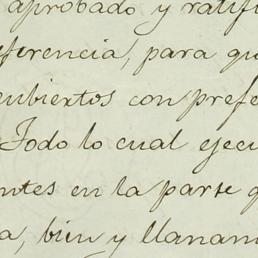 aprobado y ratifi
ferencia, para qu
cubiertos con prefe
Todo lo cual ejecu
ntes en la parte q
a, bien y llanam